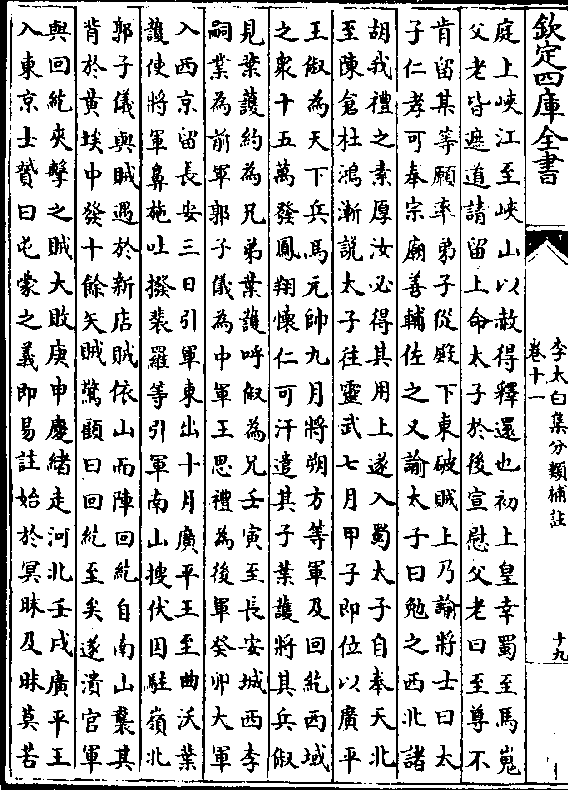 欽定四庫全書
李太白集分類補註
卷十一
十九
庭上峽江至峽山以赦得釋還也初上皇幸蜀至馬嵬
父老皆遮道請留上命太子於後宣慰父老曰至尊不
肯留某等願率弟子從殿下東破賊上乃諭將士曰太
子仁孝可奉宗廟善輔佐之又諭太子曰勉之西北諸
胡我禮之素厚汝必得其用上遂入蜀太子自奉天北
至陳倉杜鴻漸說太子往靈武七月甲子即位以廣平
王俶為天下兵馬元帥九月將朔方等軍及回紇西域
之衆十五萬發鳳翔懷仁可汗遣其子葉護將其兵俶
見葉護約為兄弟葉護呼俶為兄壬寅至長安城西李
嗣業為前軍郭子儀為中軍王思禮為後軍癸卯大軍
入西京留長安三日引軍東出十月廣平王至曲沃葉
護使將軍鼻施吐撥裴羅等引軍南山搜伏因駐嶺北
郭子儀與賊遇於新店賊依山而陣回紇自南山襲其
背於黄埃中發十餘矢賊驚顧曰回紇至矣遂潰官軍
與回紇夾擊之賊大敗庚申慶緒走河北壬戌廣平王
入東京士贇曰屯蒙之義即易註始於冥昧及昧莫苦